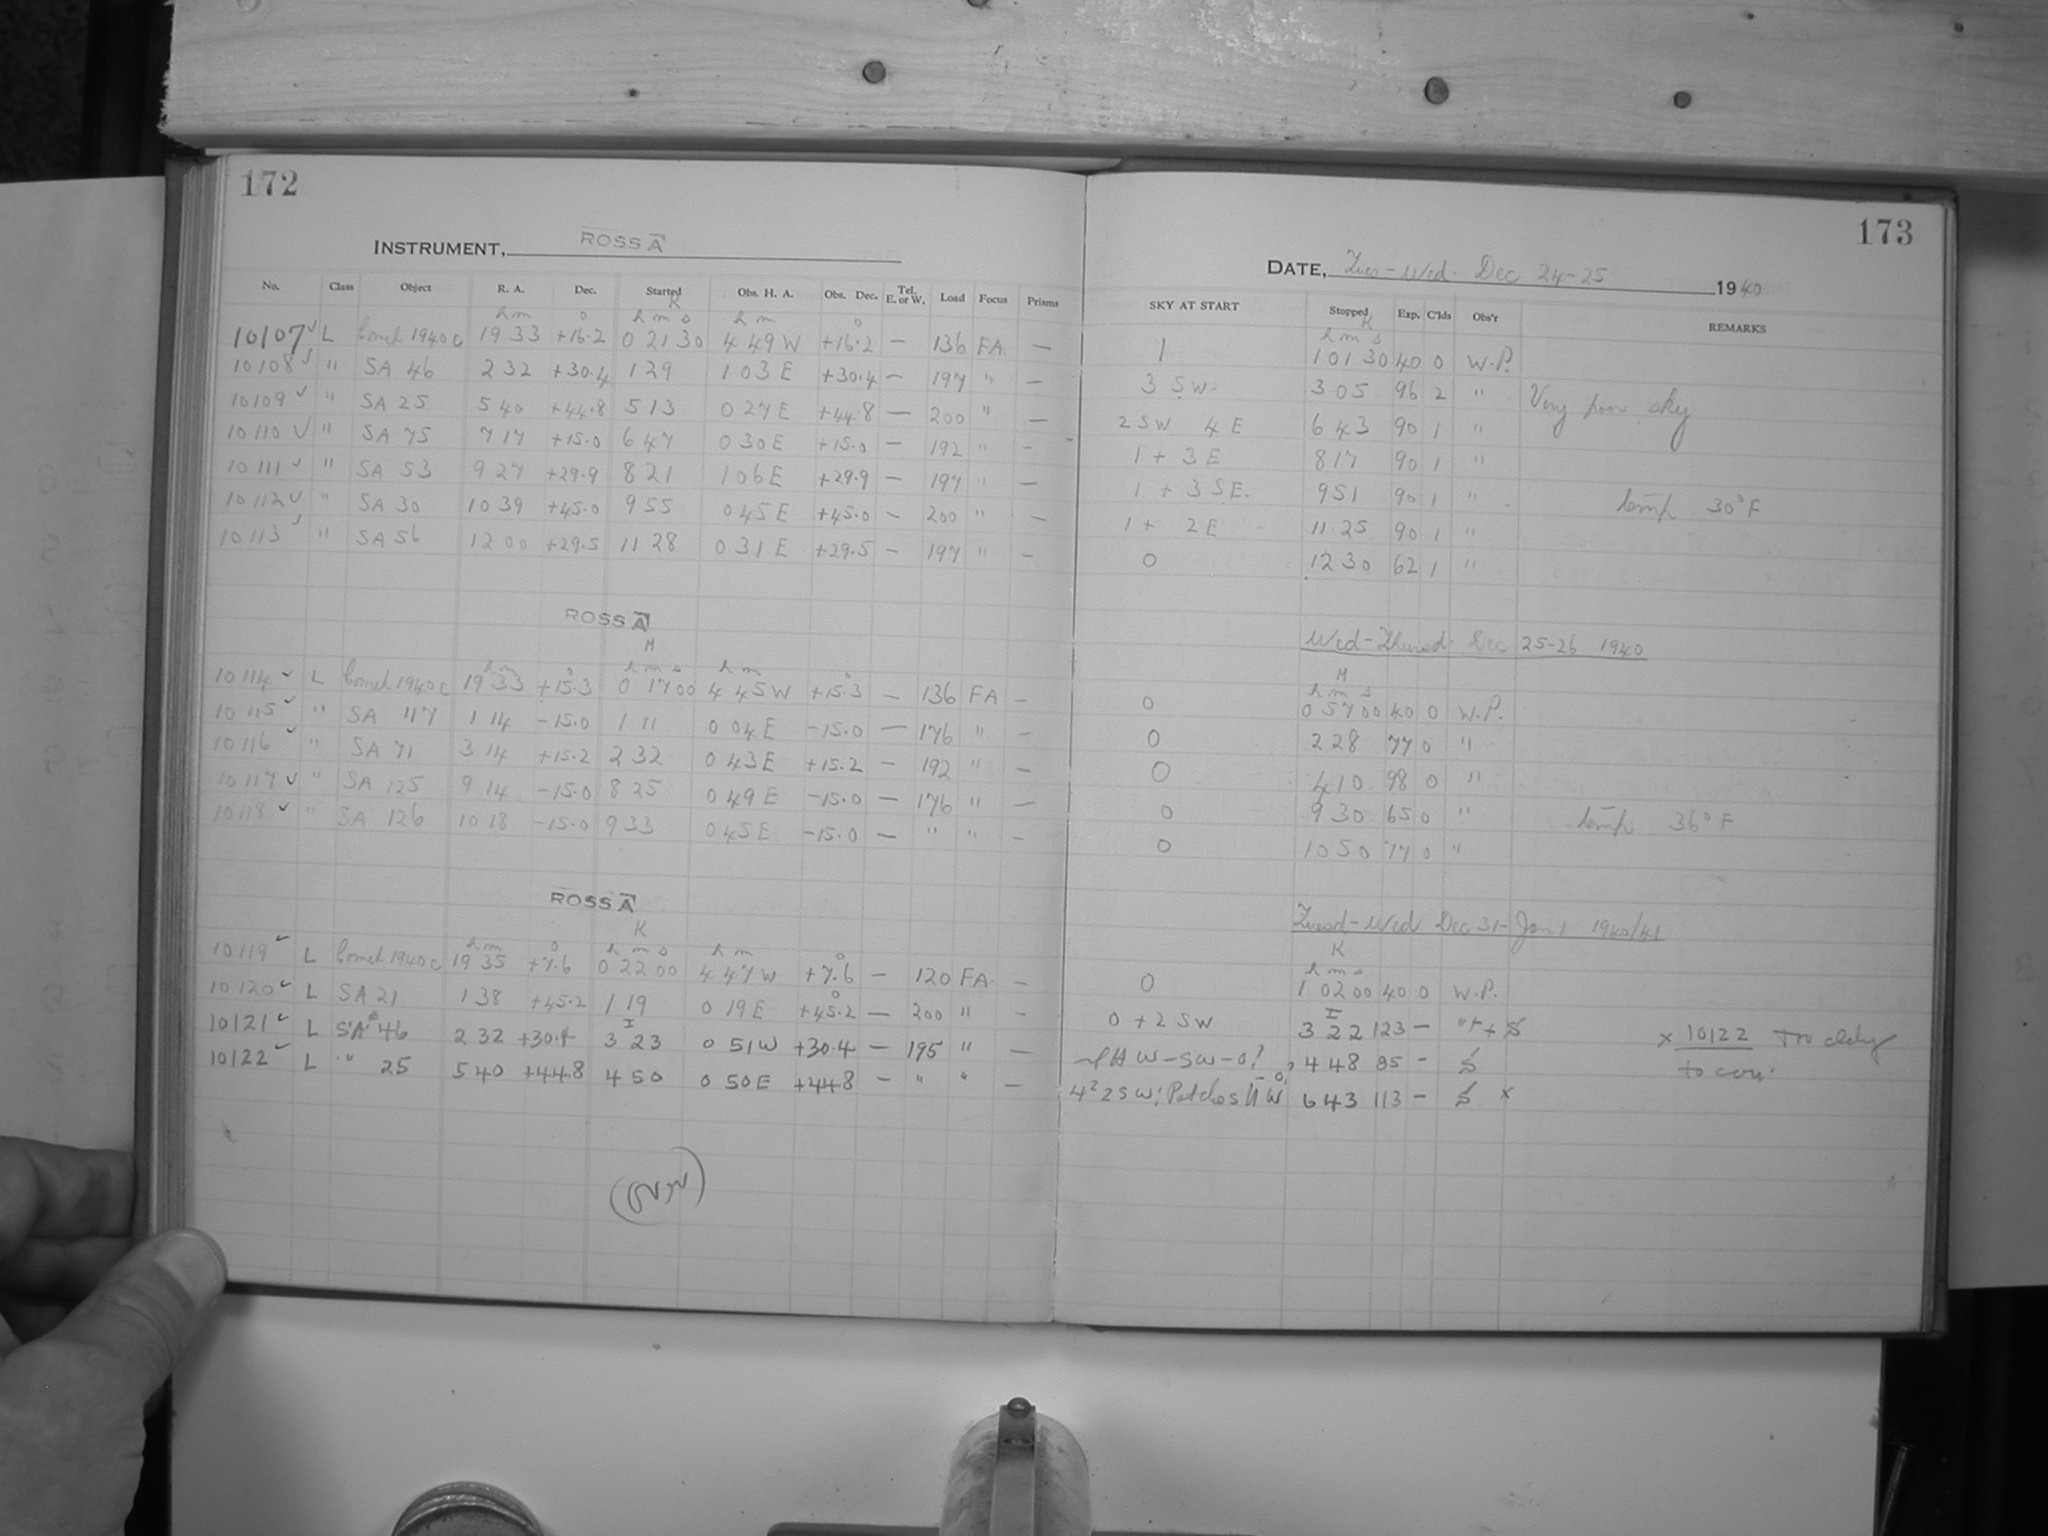 172
INSTRUMENT, ROSS A
No. Class Object R. A. Dec. Started Obs. H. A. Obs. Dec. Tel. E. or W. Load Focus Prisms
K
h m ° h m s h m °
10107 ✓ L Comet 1940c 19 33 +16.2 0 21 30 4 49 W +16.2 — 136 FA —
10108 ✓ " SA 46 2 32 +30.4 1 29 1 03 E +30.4 — 197 " —
10109 ✓ " SA 25 5 40 +44.8 5 13 0 27 E +44.8 — 200 " —
10110 ✓ " SA 75 7 17 +15.0 6 47 0 30 E +15.0 — 192 " —
10111 ✓ " SA 53 9 27 +29.9 8 21 1 06 E +29.9 — 197 " —
10112 ✓ " SA 30 10 39 +45.0 9 55 0 45 E +45.0 — 200 " —
10113 ✓ " SA 56 12 00 +29.5 11 28 0 31 E +29.5 — 197 " —
ROSS A
M
h m ° h m s h m °
10114 ✓ L Comet 1940c 19 33 +15.3 0 17 00 4 45 W +15.3 — 136 FA —
10115 ✓ " SA 117 1 14 -15.0 1 11 0 04 E -15.0 — 176 " —
10116 ✓ " SA 71 3 14 +15.2 2 32 0 43 E +15.2 — 192 " —
10117 ✓ " SA 125 9 14 -15.0 8 25 0 49 E -15.0 — 176 " —
10118 ✓ " SA 126 10 18 -15.0 9 33 0 45 E -15.0 — " " —
ROSS A
K
h m ° h m s h m °
10119 ✓ L Comet 1940c 19 35 +7.6 0 22 00 4 47 W +7.6 — 120 FA —
10120 ✓ L SA 21 1 38 +45.2 1 19 0 19 E +45.2 — 200 " —
I
10121 ✓ L SA 46 2 32 +30.4 3 23 0 51 W +30.4 — 195 " —
10122 ✓ L " 25 5 40 +44.8 4 50 0 50 E +44.8 — " " —
173
DATE, Tues-Wed. Dec 24-25 1940
SKY AT START Stopped Exp. C'lds Obs'r REMARKS
K
h m s
1 1 01 30 40 0 W.P.
3 SW 3 05 96 2 " Very poor sky
2 SW 4 E 6 43 90 1 "
1 + 3 E 8 17 90 1 "
1 + 3 SE. 9 51 90 1 " temp 30°F
1 + 2 E 11 25 90 1 "
0 12 30 62 1 "
Wed-Thursd. Dec 25-26 1940
M
h m s
0 0 57 00 40 0 W.P.
0 2 28 77 0 "
0 4 10 98 0 "
0 9 30 65 0 " temp 36°F
0 10 50 77 0 "
Tuesd-Wed Dec 31-Jan 1 1940/41
K
h m s
0 1 02 00 40 0 W.P.
I
0 + 2 SW 3 22 123 — " + S
W-SW-0? 4 48 85 — S
4 2 2 SW; Patches W 6 43 113 — S x
x 10122
to